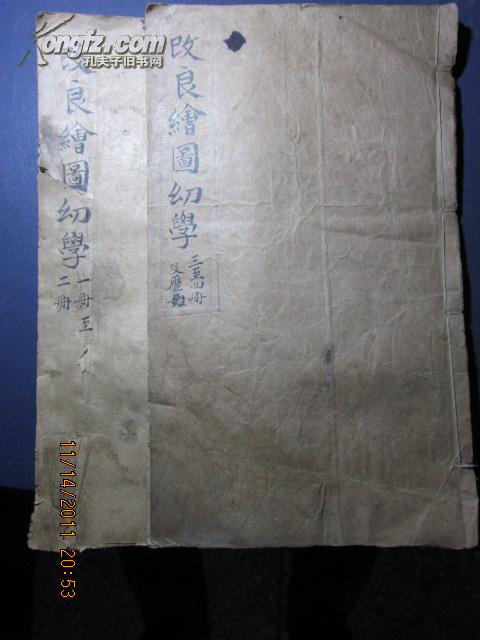 Kongfz.com
孔夫子旧书网
改良繪圖幼學
三至四冊
及歷
改良繪圖幼學
一冊至
二冊
11/14/2011 20:53